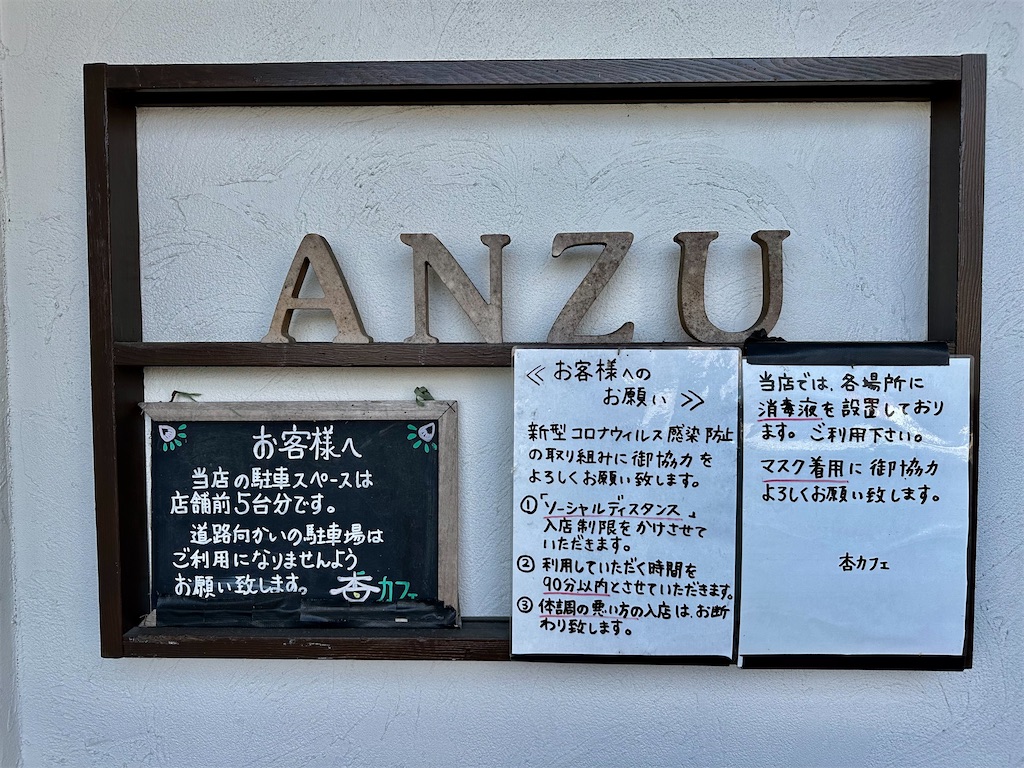 ANZU
お客様へ
当店の駐車スペースは
店舗前5台分です。
道路向かいの駐車場は
ご利用になりませんよう
お願い致します。 杏カフェ
≪ お客様への
お願い ≫
新型コロナウィルス感染防止
の取り組みに御協力を
よろしくお願い致します。
①「ソーシャルディスタンス」
入店制限をかけさせて
いただきます。
② 利用していただく時間を
90分以内とさせていただきます。
③ 体調の悪い方の入店は、お断
わり致します。
当店では、各場所に
消毒液を設置しており
ます。ご利用下さい。
マスク着用に御協力
よろしくお願い致します。
杏カフェ